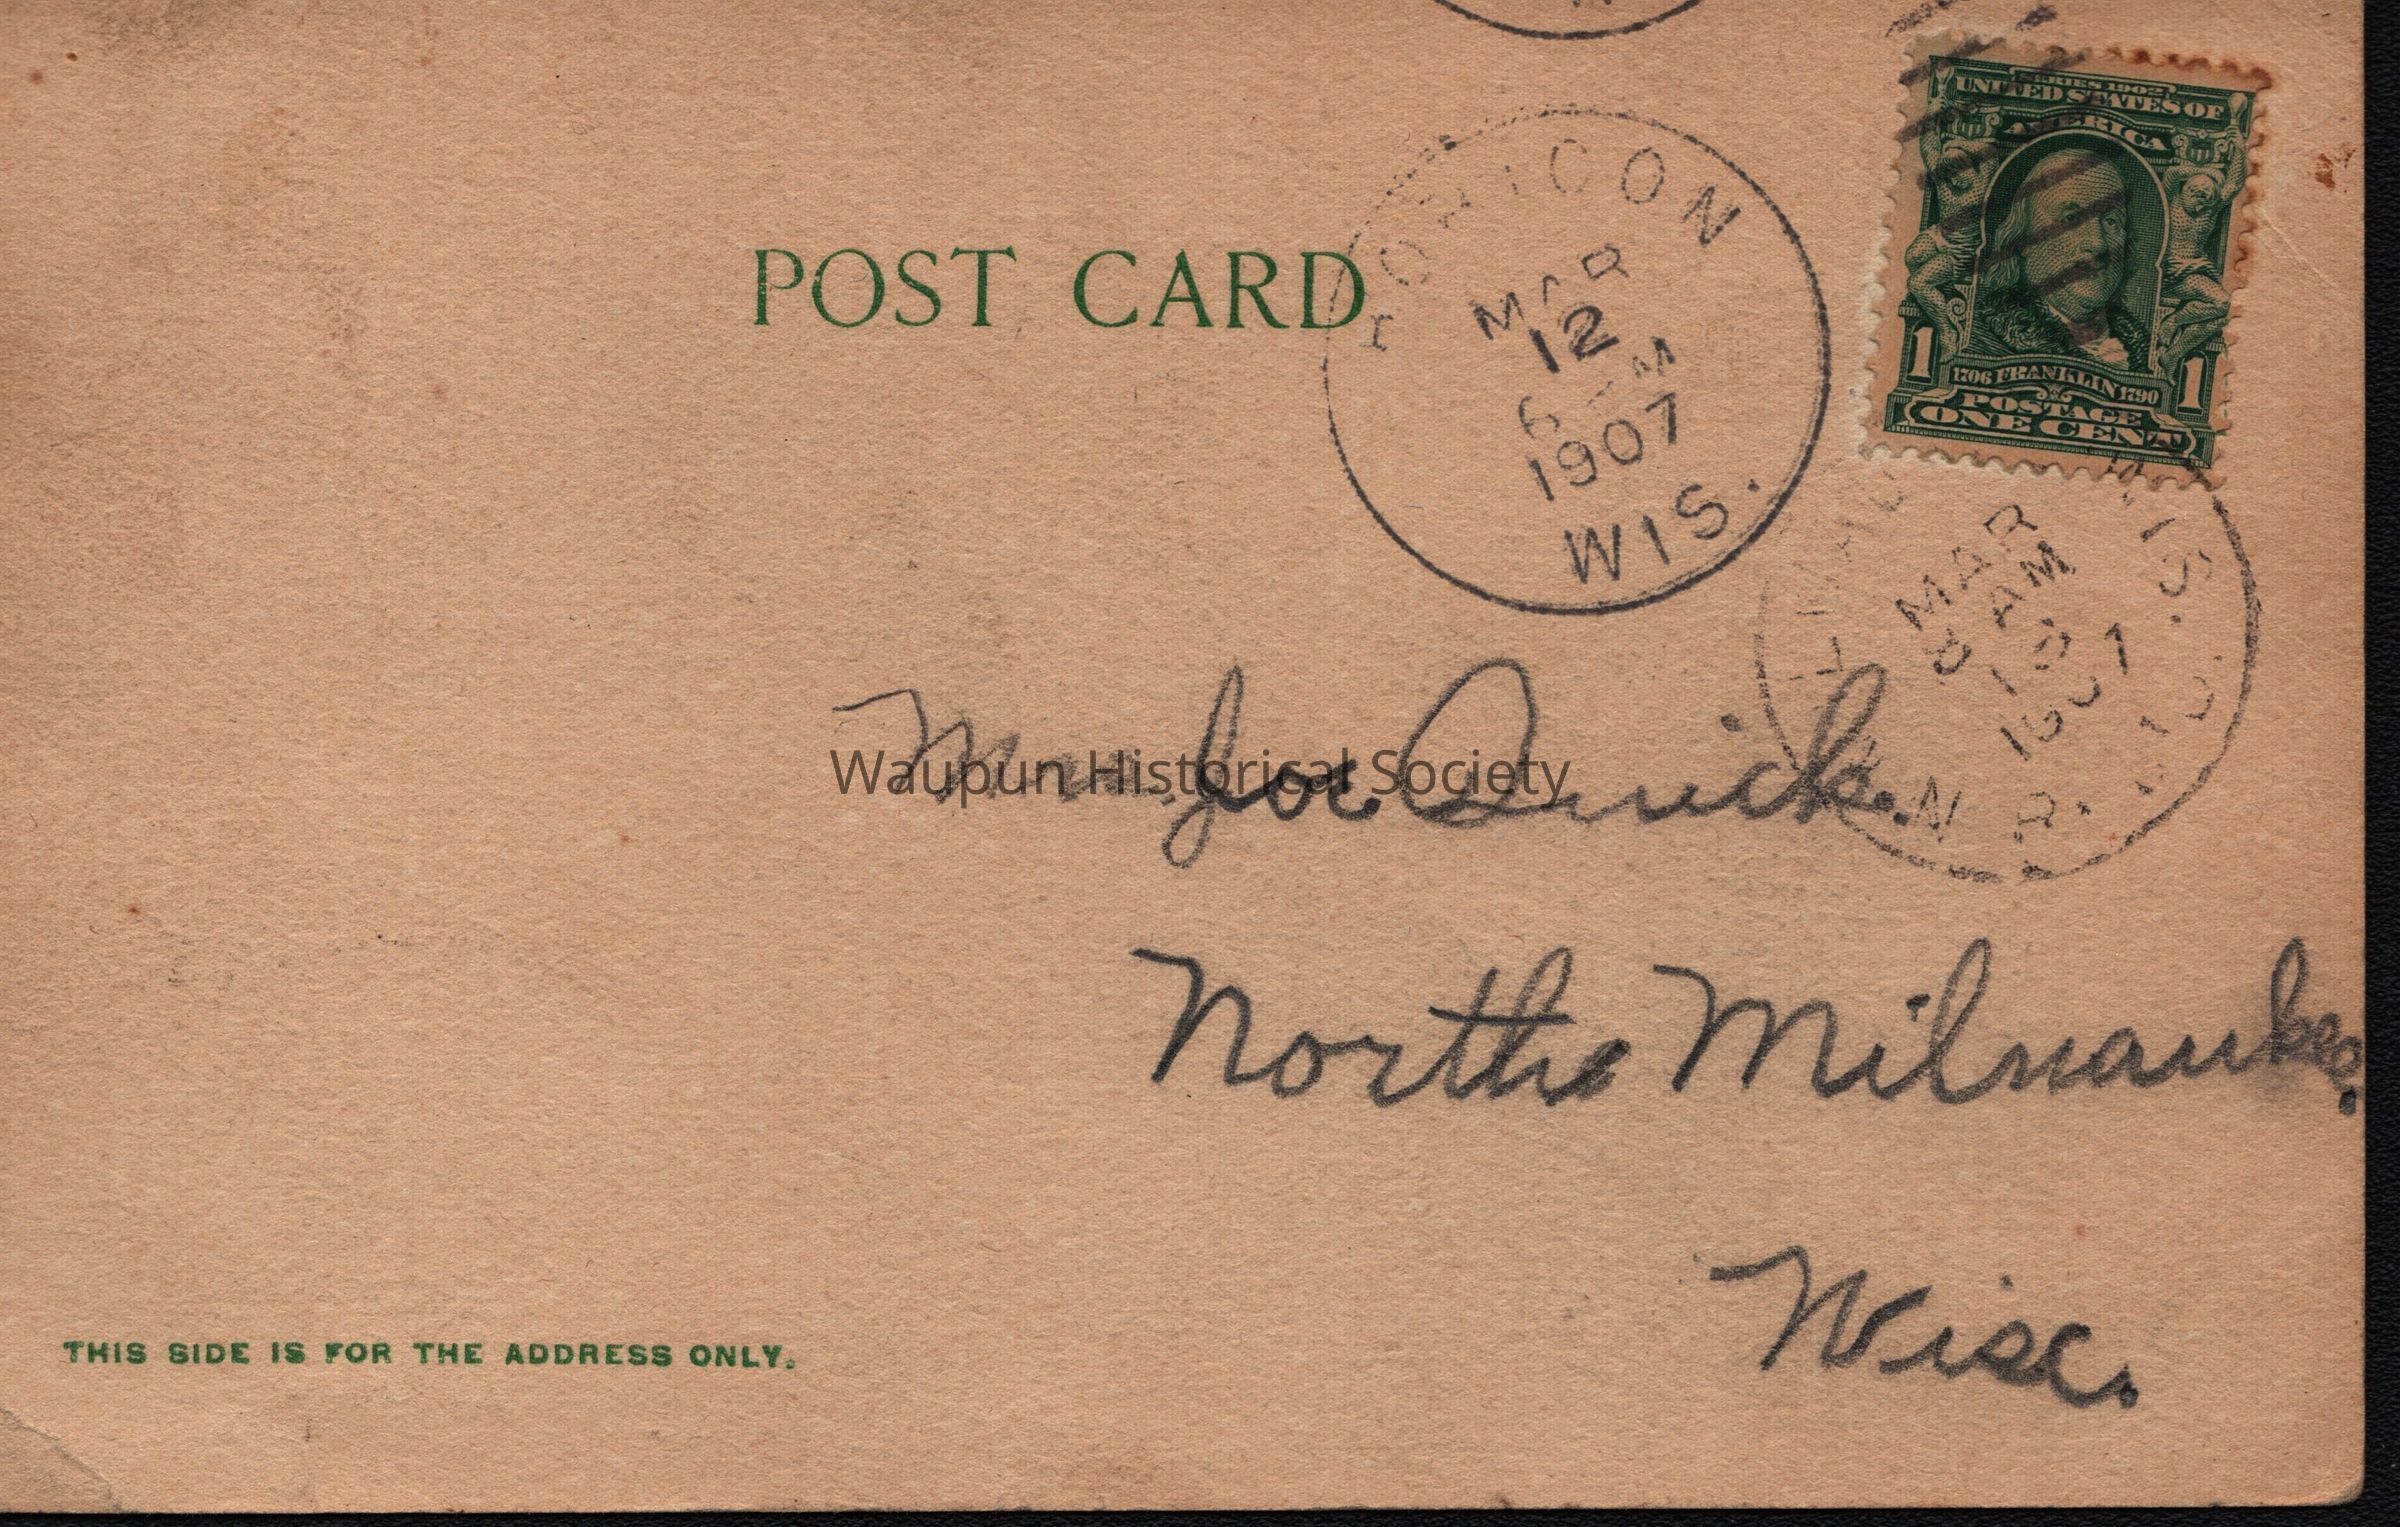 SERIES 1902
UNITED STATES OF
AMERICA
1 1
1706 FRANKLIN 1790
POSTAGE
ONE CENT
HORICON
MAR
12
6 PM
1907
WIS.
POST CARD
WIS.
MAR
8 AM
13
1907
Joe Quick.
Waupun Historical Society
North Milwaukee.
Wisc.
THIS SIDE IS FOR THE ADDRESS ONLY.